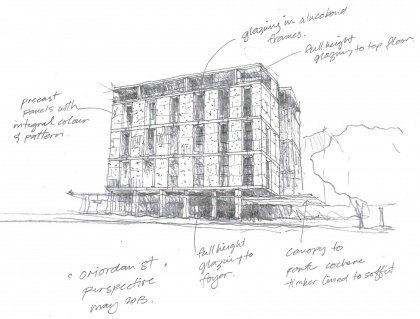 glazing in alucobond
frames.
full height
glazing to top floor
precast
panels with
integral colour
& pattern.
full height
glazing to
foyer.
canopy to
porte cochere
timber lined to soffit
• ORiordan St •
perspective
may 2013.